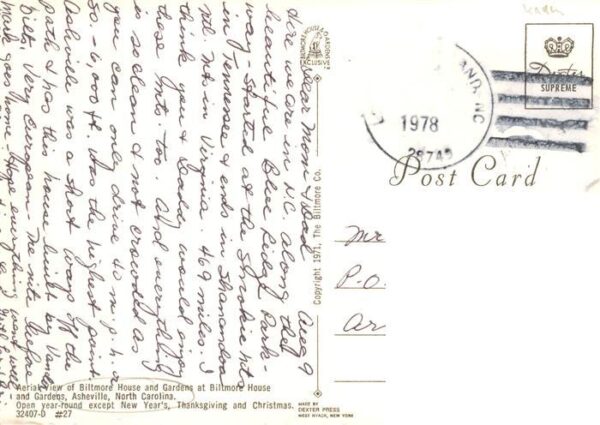 Aug 9
Dear Mom & Dad
Here we are in N.C. along the
beautiful Blue Ridge Park
way - Started at the Smokie Mts
in Tennessee & ends in Shanandoa
Mts. in Virginia. 469 miles. I
think you & Dadd would enjoy
these Mts. too. And everything
is so clean & not crowded as
you can only drive 45 m.p.h. or
So. - 6,000 ft. was the highest point.
Ashville was a short way off the
path & has this house built by Vander
Bilt, Very European. One nite before
Mark goes home. Hope everything went well
Mr
P.O.
Ar
Post Card
Dexter
SUPREME
AND, NC
1978
28749
BILTMORE HOUSE & GARDENS
EXCLUSIVE
Copyright 1971, The Biltmore Co.
Aerial View of Biltmore House and Gardens at Biltmore House
and Gardens, Asheville, North Carolina.
Open year-round except New Year's, Thanksgiving and Christmas.
32407-D #27
MADE BY
DEXTER PRESS
WEST NYACK, NEW YORK